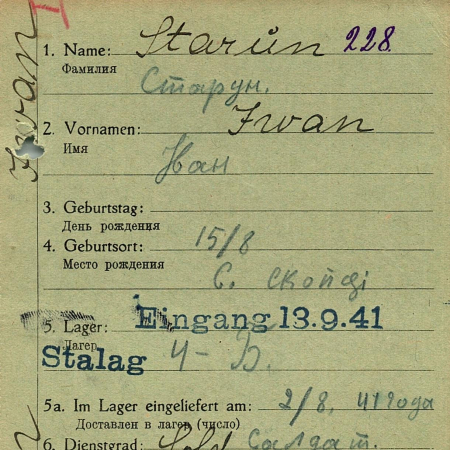 1. Name: Starŭn 228.
Фамилия
Старун.
2. Vornamen: Iwan
Имя
Иван
3. Geburtstag:
День рождения
4. Geburtsort: 15/8
Место рождения
С. скопці
Eingang 13.9.41
5. Lager:
Лагерь
Stalag 4-Б.
5a. Im Lager eingeliefert am: 2/8. 41 года
Доставлен в лагерь (число)
6. Dienstgrad: Sold Салдат.
Iwan